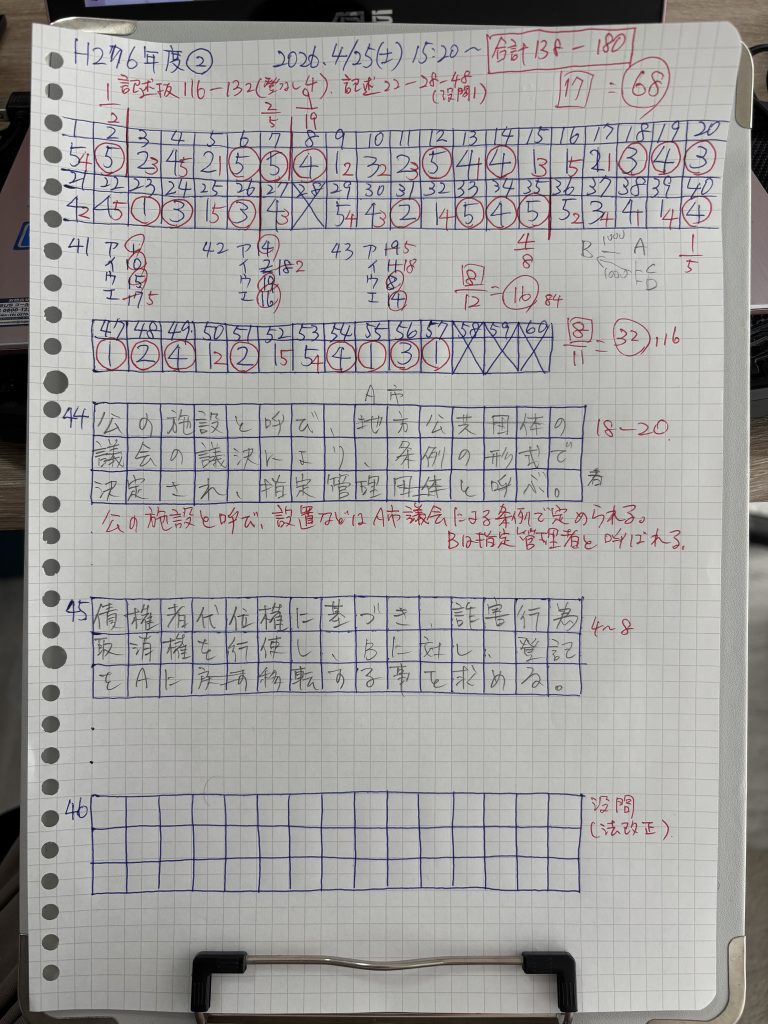 H26年度② 2026.4/25(土) 15:20〜 合計138-180
記述抜116-132 記述22-28-48 17 = 68
(没問1)
1/2 2/5 9/19
1 2 3 4 5 6 7 8 9 10 11 12 13 14 15 16 17 18 19 20
54 5 23 45 21 5 5 4 12 32 23 5 41 4 13 15 21 3 4 3
21 22 23 24 25 26 27 28 29 30 31 32 33 34 35 36 37 38 39 40
42 45 1 3 15 3 43 X 54 43 2 14 5 4 5 52 34 41 14 4
41 ア1 42 ア4 43 ア195 4/8 B 1000 A 1/5
イ10 イ2182 イ418 8/12 = 16,84 1000 C
ウ15 ウ19 ウ8 D
エ175 エ16 エ14
47 48 49 50 51 52 53 54 55 56 57 58 59 60
1 2 4 12 2 15 54 4 1 3 1 X X X 8/11 = 32,116
A市
44 公の施設と呼び、地方公共団体の 18-20
議会の議決により、条例の形式で
決定され、指定管理団体と呼ぶ。 者
公の施設と呼び、設置などはA市議会による条例で定められる。
Bは指定管理者と呼ばれる。
45 債権者代位権に基づき、詐害行為 4〜8
取消権を行使し、Bに対し、登記
をAに移転する事を求める。
46 没問
(法改正)